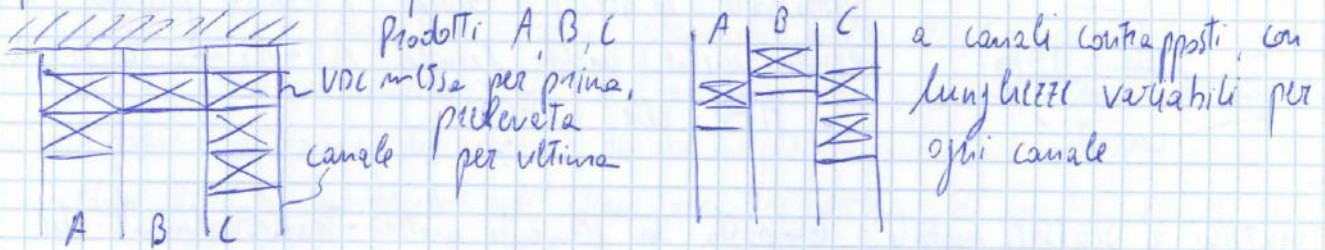 Prodotti A, B, C
UDC messa per prima,
prelevata
per ultima
canale
A B C
A B C
a canali contrapposti, con
lunghezze variabili per
ogni canale